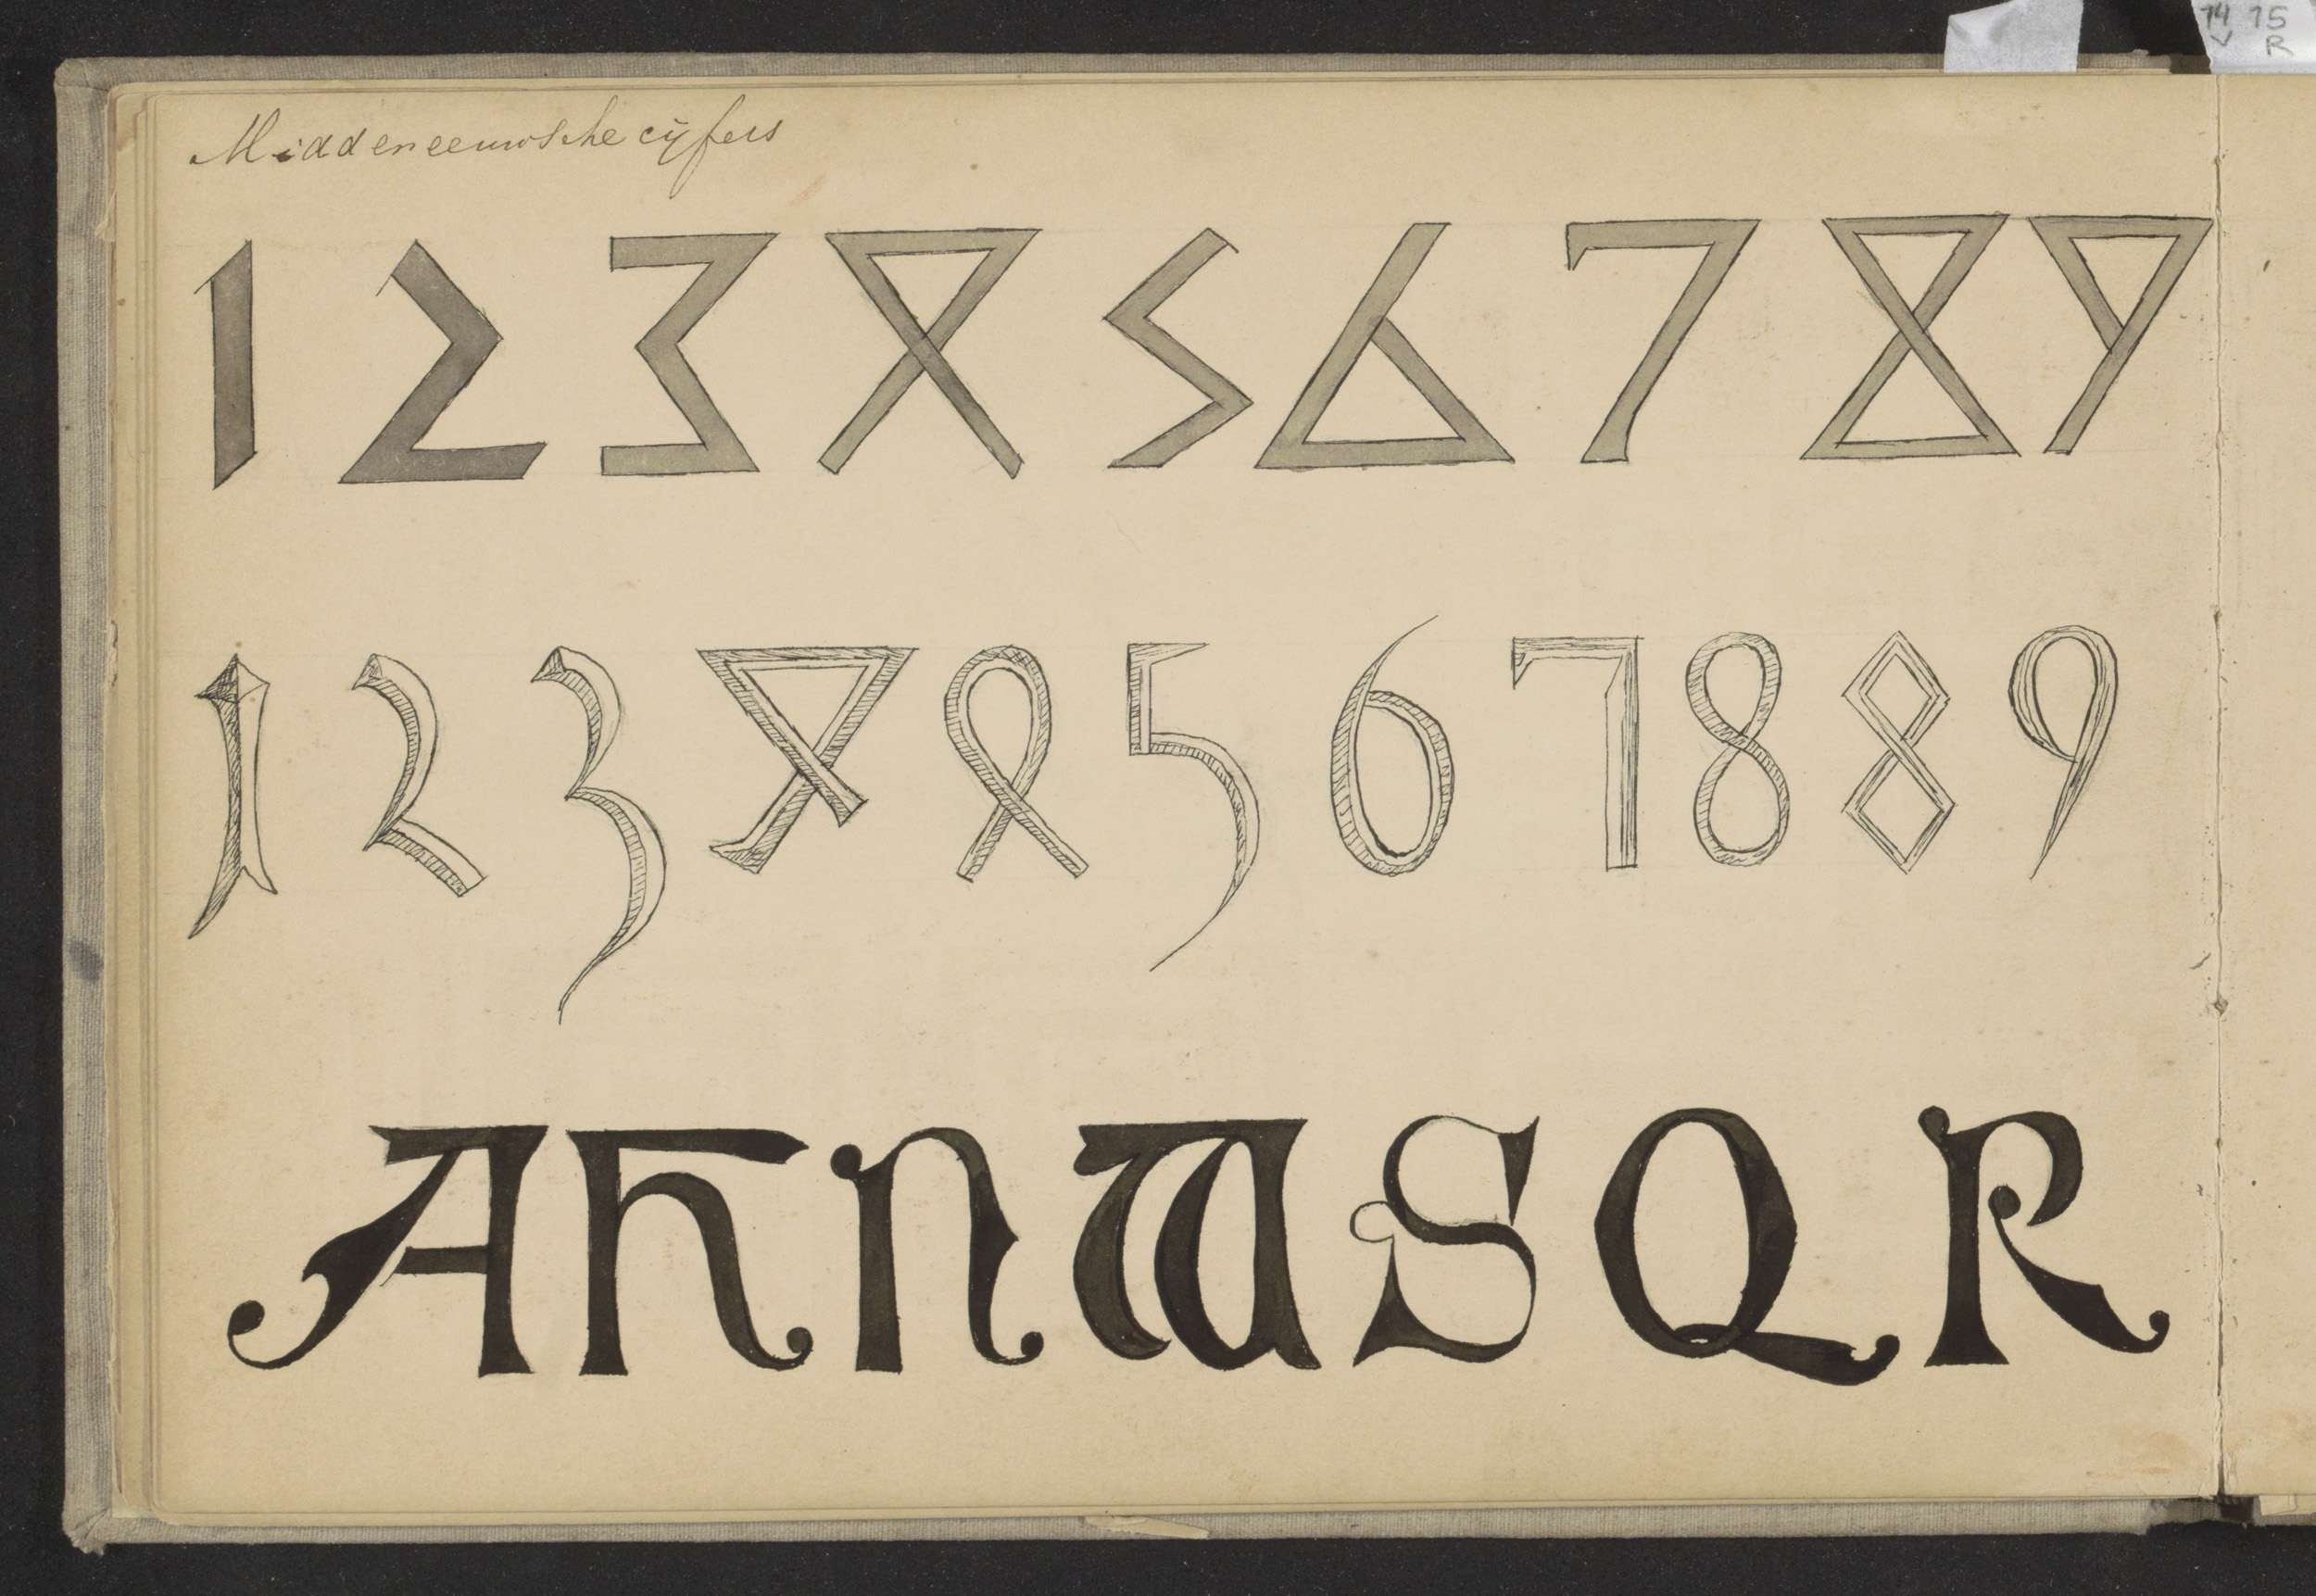 14 15
V R
Middeneeuwsche cijfers
1 2 3 4 5 6 7 8 9
1 2 3 4 4 5 6 7 8 8 9
A H N W S Q R